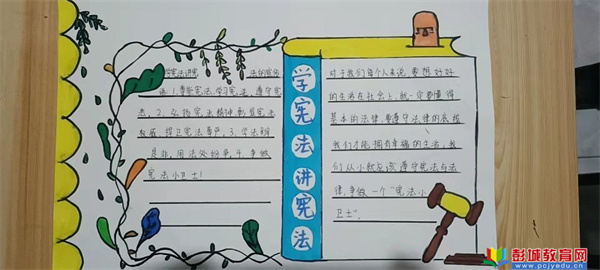 学宪法讲宪法
学宪法讲宪
法的宣传
语:1.尊崇宪法,学习宪法,遵守宪
法,2.弘扬宪法精神,彰显宪法
权威,捍卫宪法尊严,3.学法辨
是非,用法处纷争,4.争做
宪法小卫士!
对于我们每个人来说,要想好好
的生活在社会上,就一定要懂得
基本的法律,要遵守法律的底线
我们才能拥有幸福的生活,我
们从小就应该遵守宪法与法
律,争做一个“宪法小
卫士”.
彭城教育网
www.pcjyedu.cn